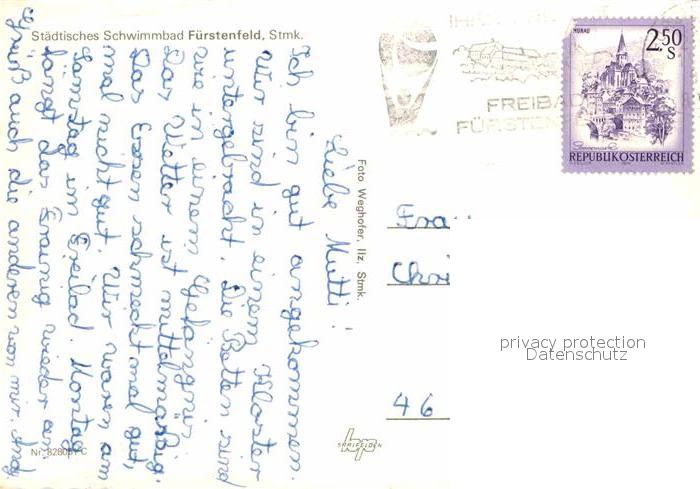 Städtisches Schwimmbad Fürstenfeld, Stmk.
Liebe Mutti!
Ich bin gut angekommen.
Wir sind in einem Kloster
untergebracht. Die Betten sind
wie in einem Gefängnis
Das Wetter ist mittelmäßig.
Das Essen schmeckt mal gut,
mal nicht gut. Wir waren am
Samstag im Freibad. Montag
fängt das Training wieder an.
Grüß auch die anderen von mir.
Foto Weghofer, Ilz, Stmk.
Nr. 828001 C
FREIBAD
FÜRSTEN
MURAU
2.50
S
REPUBLIK ÖSTERREICH
Fra
Chri
46
privacy protection
Datenschutz